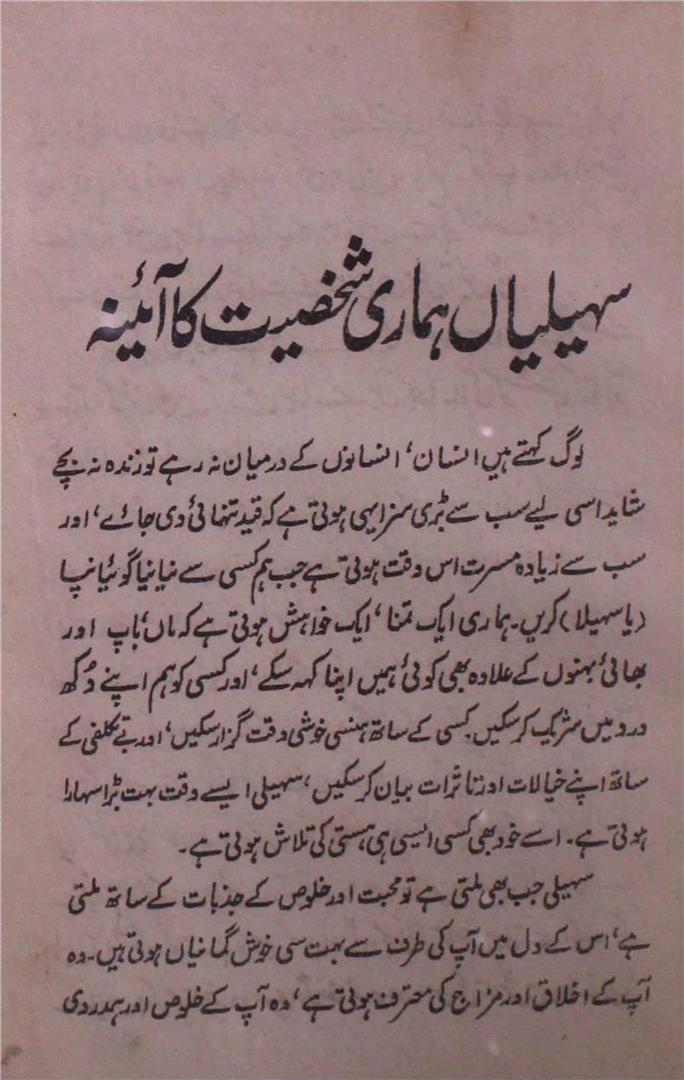 سہیلیاں ہماری شخصیت کا آئینہ
لوگ کہتے ہیں انسان، انسانوں کے درمیان نہ رہے تو زندہ نہ بچے
شاید اسی لیے سب سے بڑی سزا یہی ہوتی ہے کہ قید تنہائی دی جائے، اور
سب سے زیادہ مسرت اس وقت ہوتی ہے جب ہم کسی سے نیا نیا گوئیانپا
(یا سہیلا) کریں۔ ہماری ایک تمنا، ایک خواہش ہوتی ہے کہ ماں، باپ اور
بھائی بہنوں کے علاوہ بھی کوئی ہمیں اپنا کہہ سکے، اور کسی کو ہم اپنے دُکھ
درد میں شریک کر سکیں۔ کسی کے ساتھ ہنسی خوشی وقت گزار سکیں، اور بے تکلفی کے
ساتھ اپنے خیالات اور تاثرات بیان کر سکیں، سہیلی ایسے وقت بہت بڑا سہارا
ہوتی ہے۔ اسے خود بھی کسی ایسی ہی ہستی کی تلاش ہوتی ہے۔
سہیلی جب بھی ملتی ہے تو محبت اور خلوص کے جذبات کے ساتھ ملتی
ہے، اس کے دل میں آپ کی طرف سے بہت سی خوش گمانیاں ہوتی ہیں۔ وہ
آپ کے اخلاق اور مزاج کی معترف ہوتی ہے، وہ آپ کے خلوص اور ہمدردی